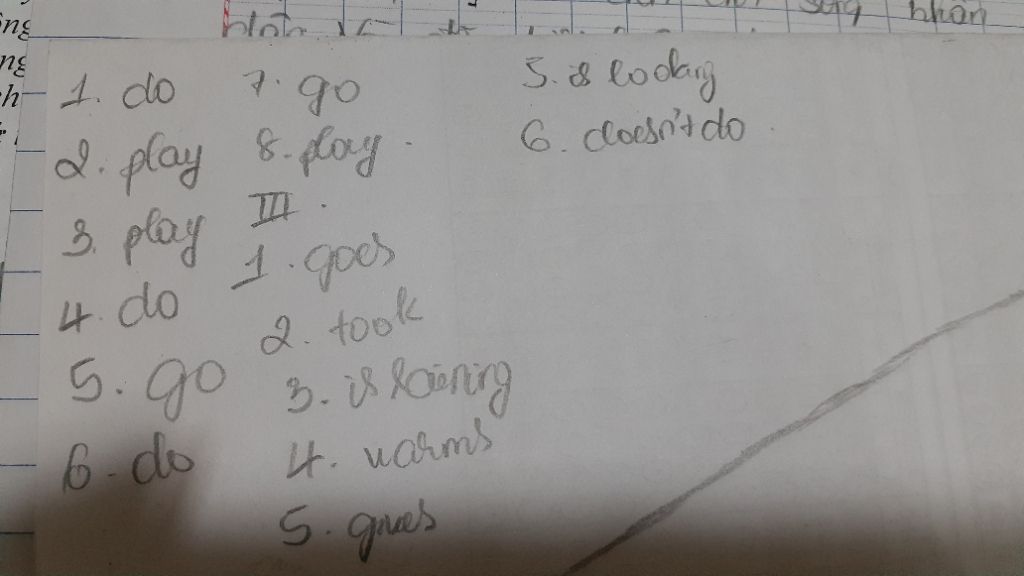 1. do
2. play
3. play
4. do
5. go
6. do
7. go
8. play
III.
1. goes
2. took
3. is
4. warms
5. gives
5. is
6. doesn't do